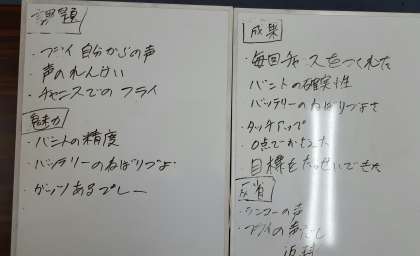 課題
・プレイ 自分からの声
・声のれんけい
・チャンスでのフライ
魅力
・バントの精度
・バッテリーのねばりづよ
・ガッツあるプレー
成果
・毎回チャンスをつくれた
バントの確実性
バッテリーのねばりづよさ
・タッチアップ
・0点でかちた
目標をたっせいできた
反省
・シンコーの声
・プレイの声だし